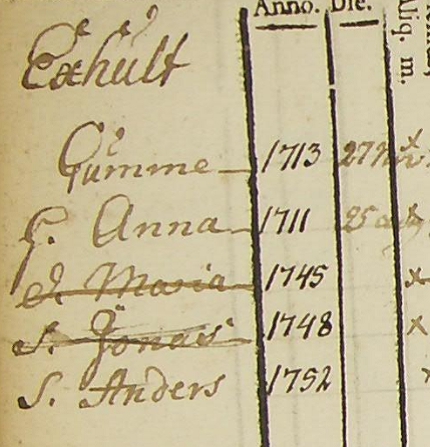 Anno. Die.
Exhult
Gumme 1713 27 Nov
h. Anna 1711 25 aug
d Maria 1745 x
S. Jonas 1748 x
S. Anders 1752
Aliq. m.